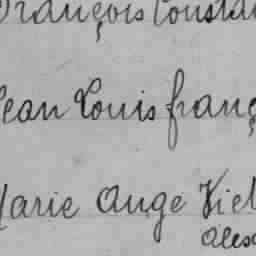 François Constan
Jean Louis franç
Marie Ange Viel
Alex